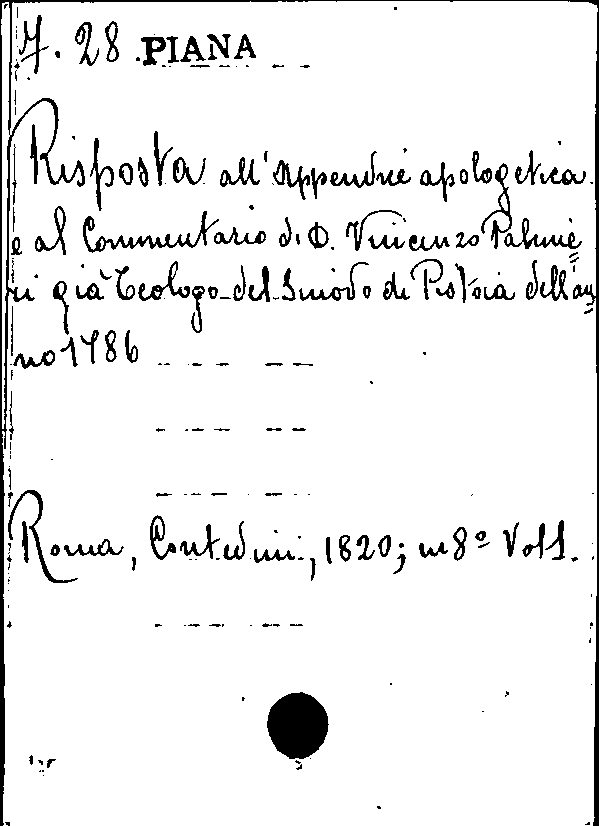 7. 28 PIANA
Risposta all'Appendice apologetica
e al Commentario di D. Vincenzo Palmie
ri già Teologo del Sinodo di Pistoia dell'an
no 1786
Roma, Contedini, 1820; in 8º Vol 1.